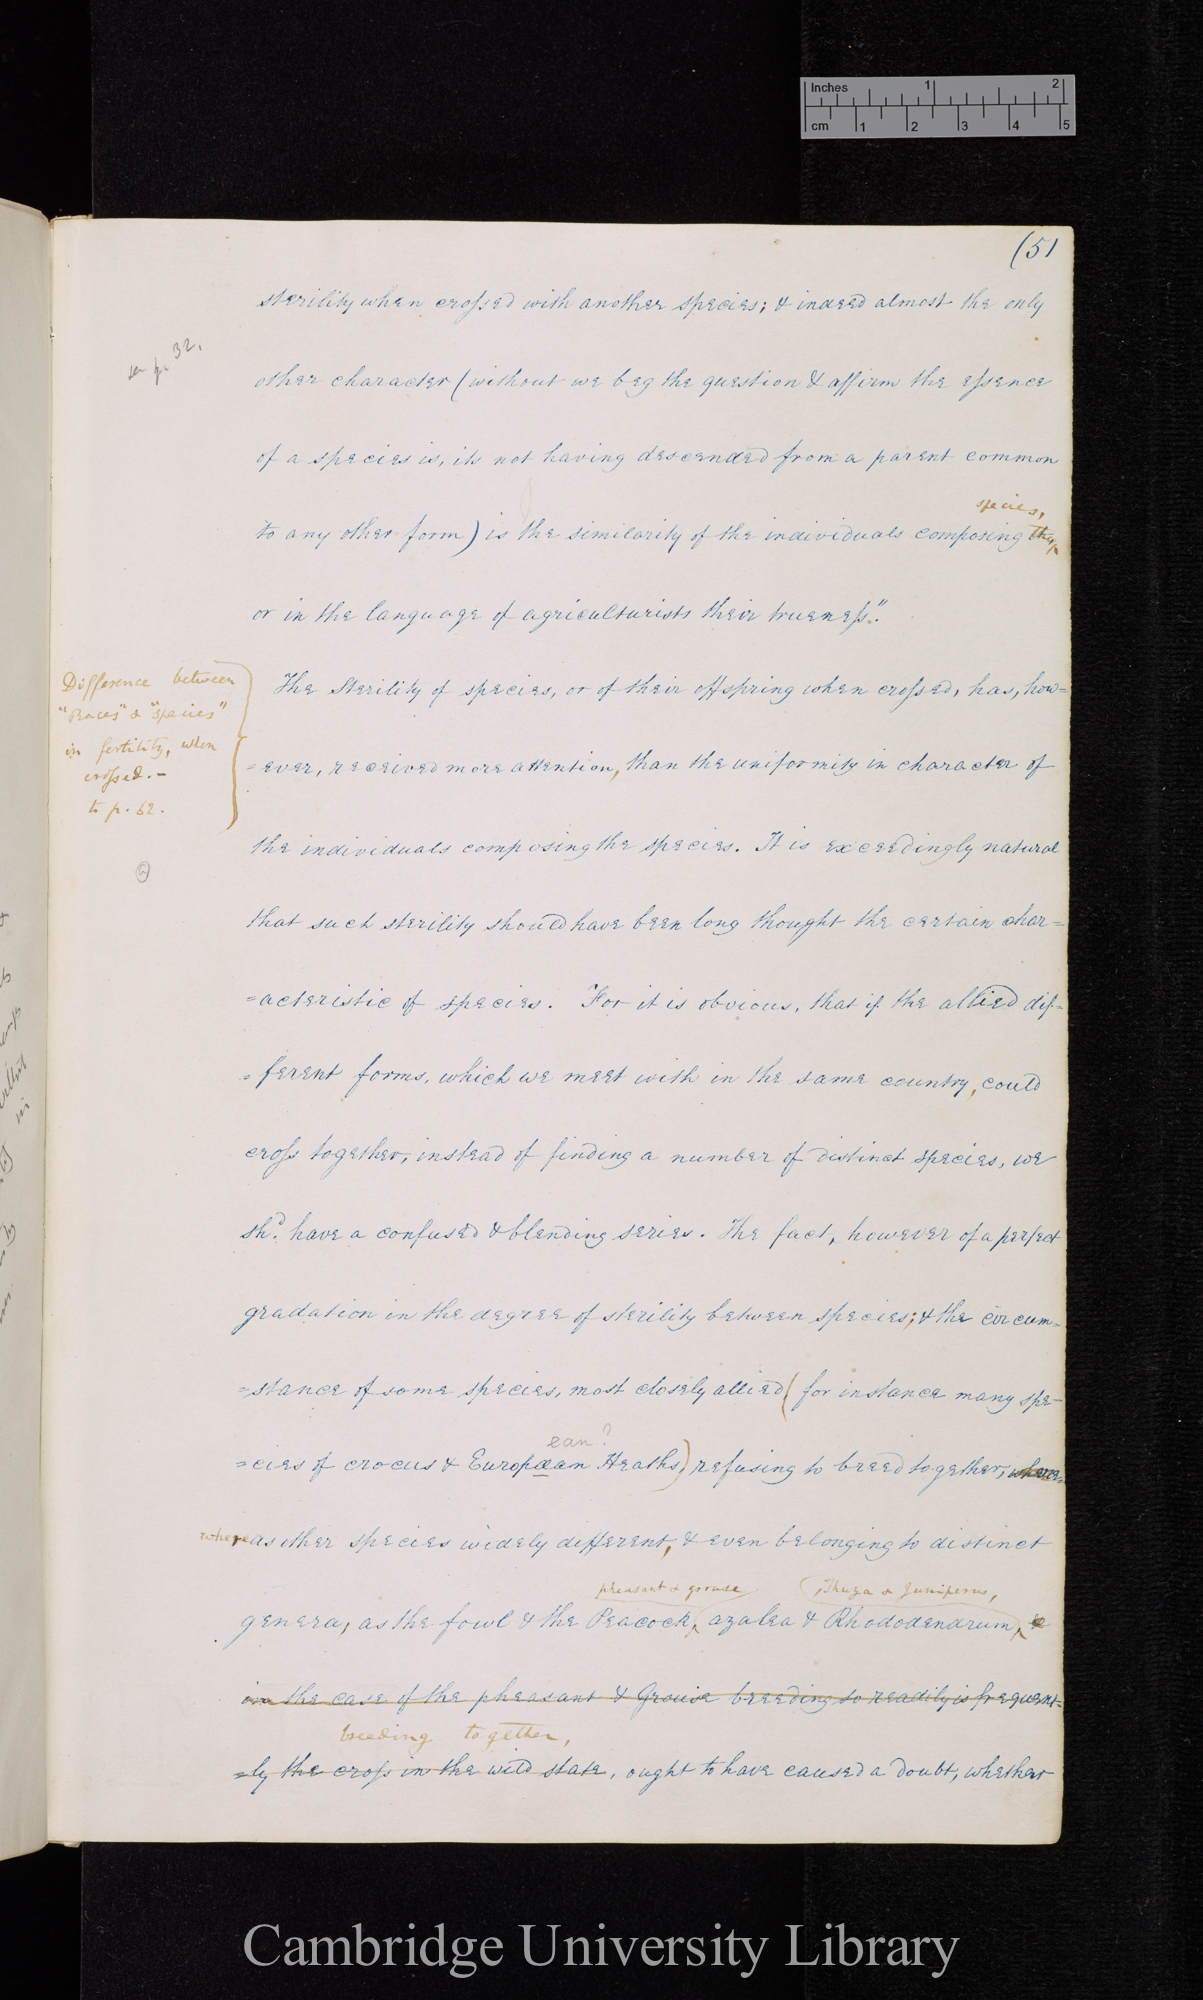 Inches 1 2
cm 1 2 3 4 5
(51
sterility when crossed with another species; & indeed almost the only
see p. 32.
other character (without we beg the question & affirm the essence
of a species is, its not having descended from a parent common
species,
to any other form) is the similarity of the individuals composing them
or in the language of agriculturists their trueness."
Difference between
"Races" & "Species"
in fertility, when
crossed. –
to p. 62.
The sterility of species, or of their offspring when crossed, has, how=
=ever, received more attention, than the uniformity in character of
the individuals composing the species. It is exceedingly natural
that such sterility should have been long thought the certain char=
=acteristic of species. For it is obvious, that if the allied dif=
=ferent forms, which we meet with in the same country, could
cross together, instead of finding a number of distinct species, we
shd. have a confused & blending series. The fact, however of a perfect
gradation in the degree of sterility between species; & the circum=
=stance of some species, most closely allied (for instance many spe=
ean?
=cies of crocus & Europæan Heaths) refusing to breed together, where=
whereas other species widely different, & even belonging to distinct
pheasant & grouse Thuza & Juniperus,
genera, as the fowl & the Peacock, azalea & Rhododendrum, &
in the case of the pheasant & Grouse breeding so readily is frequent=
breeding together,
=ly the cross in the wild state, ought to have caused a doubt, whether
Cambridge University Library